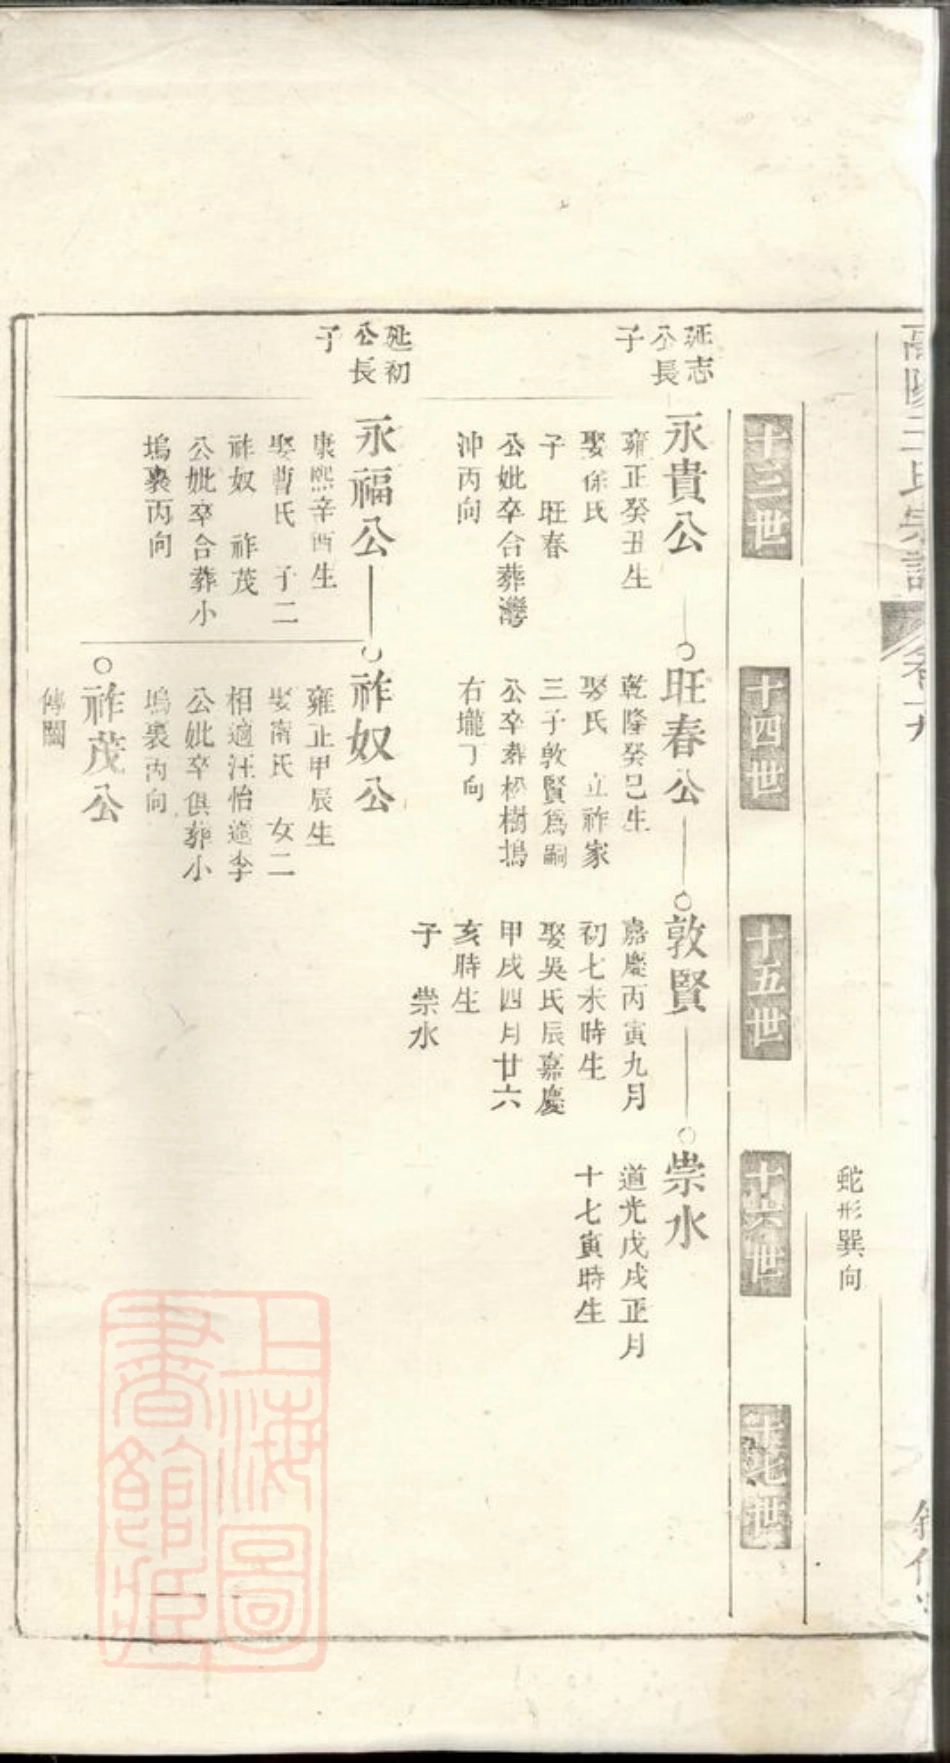 蛇形巽向
十三世
十四世
十五世
十六世
十七世
延志
公長
子
永貴公
雍正癸丑生
娶徐氏
子 旺春
公妣卒合葬灣
沖丙向
旺春公
乾隆癸巳生
娶氏 立祚家
三子敦賢爲嗣
公卒葬松樹塢
右壠丁向
敦賢
嘉慶丙寅九月
初七未時生
娶吳氏辰嘉慶
甲戌四月廿六
亥時生
子 崇水
崇水
道光戊戌正月
十七寅時生
延初
公長
子
永福公
康熙辛酉生
娶曹氏 子二
祚奴 祚茂
公妣卒合葬小
塢裏丙向
祚奴公
雍正甲辰生
娶南氏 女二
相適汪怡適李
公妣卒俱葬小
塢裏丙向
祚茂公
傳闕
上海圖
書館藏